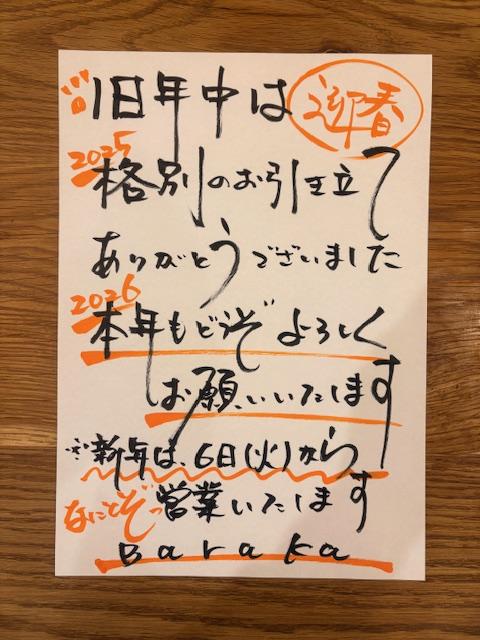 旧年中は
迎春
2025
格別のお引き立て
ありがとうございました
2026
本年もどうぞよろしく
お願いいたします
※新年は、6日(火)から
なにとぞっ
営業いたします
Baraka